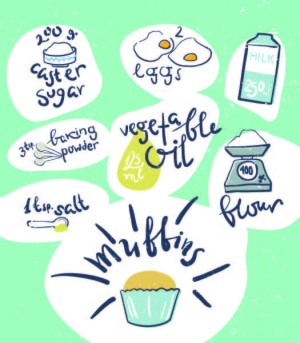 200 g.
caster
sugar
2
eggs
MILK
250
baking
powder
vegetable
oil
125
ml
400
g.
flour
1 tsp. salt
muffins